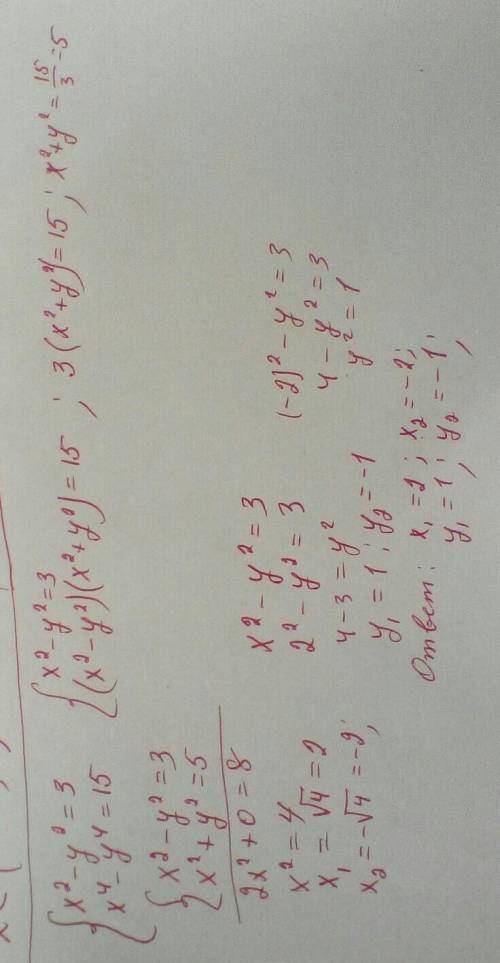 { x² - y² = 3
x⁴ - y⁴ = 15
{ x² - y² = 3
(x² - y²)(x² + y²) = 15 ; 3(x² + y²) = 15 ; x² + y² = 15/3 = 5
{ x² - y² = 3
x² + y² = 5
2x² + 0 = 8
x² = 4
x₁ = √4 = 2
x₂ = -√4 = -2;
x² - y² = 3
2² - y² = 3
4 - 3 = y²
y₁ = 1 ; y₂ = -1
(-2)² - y² = 3
4 - y² = 3
y² = 1
Ответ: x₁ = 2 ; x₂ = -2;
y₁ = 1 ; y₂ = -1;